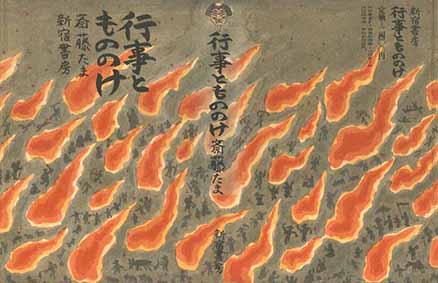 行事と
もののけ
斎藤たま
新宿書房
行事ともののけ
斎藤たま
新宿書房
新宿書房
行事ともののけ